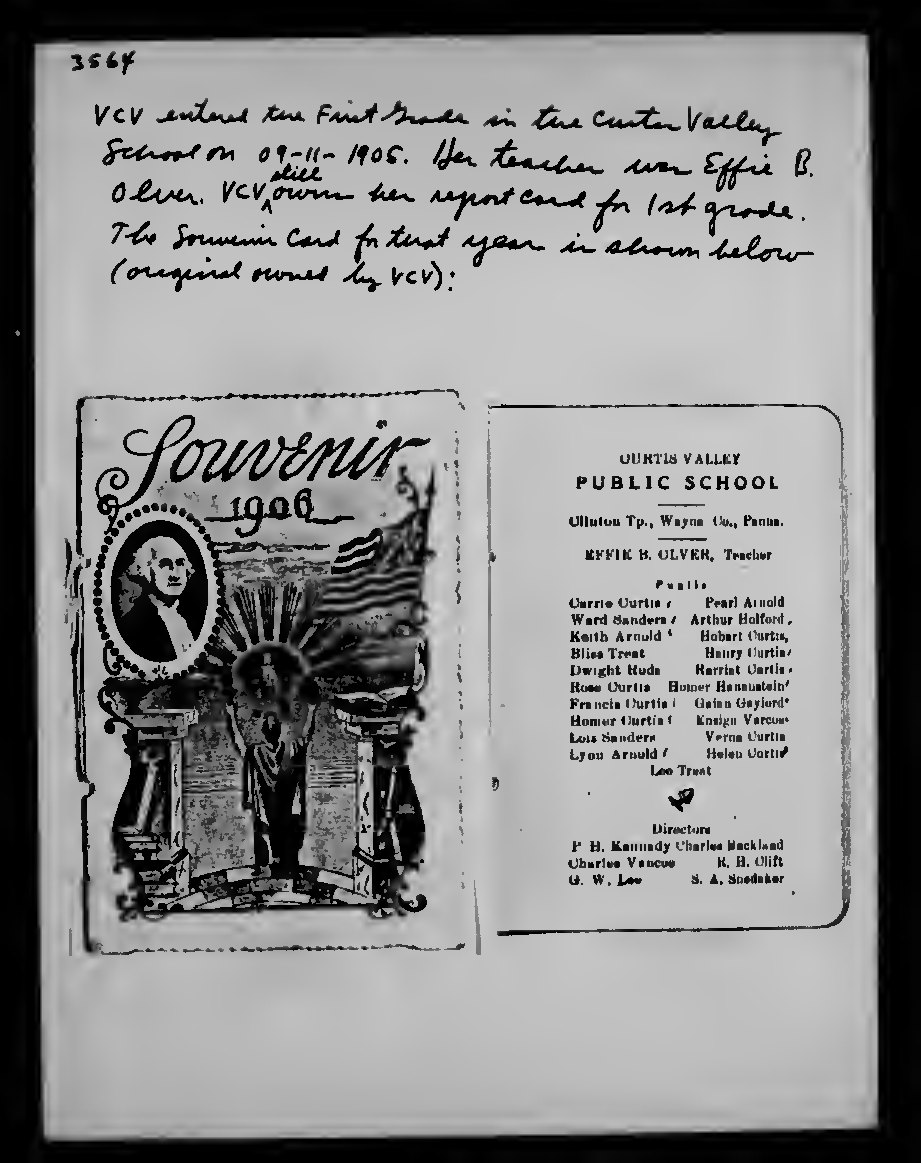 3564
VCV entered the First Grade in the Curtis Valley
School on 09-11-1905. Her teacher was Effie B.
Olver. VCV still owns her report card for 1st grade.
The Souvenir Card for that year is shown below
(original owned by VCV):
Souvenir
1906
CURTIS VALLEY
PUBLIC SCHOOL
Clinton Tp., Wayne Co., Penna.
EFFIE B. OLVER, Teacher
Pupils
Carrie Curtis Pearl Arnold
Ward Sanders Arthur Holford
Keith Arnold Hobart Curtis
Bliss Treat Henry Curtis
Dwight Rude Harriet Curtis
Rose Curtis Homer
Francis Curtis Gaylord
Homer Curtis Ensign Varcoe
Lois Sanders Verna Curtis
Lyon Arnold Helen Curtis
Lee Treat
Directors
P. H. Kennedy Charles
Charles Varcoe R. H. Clift
G. W. Lee S. A. Snedaker